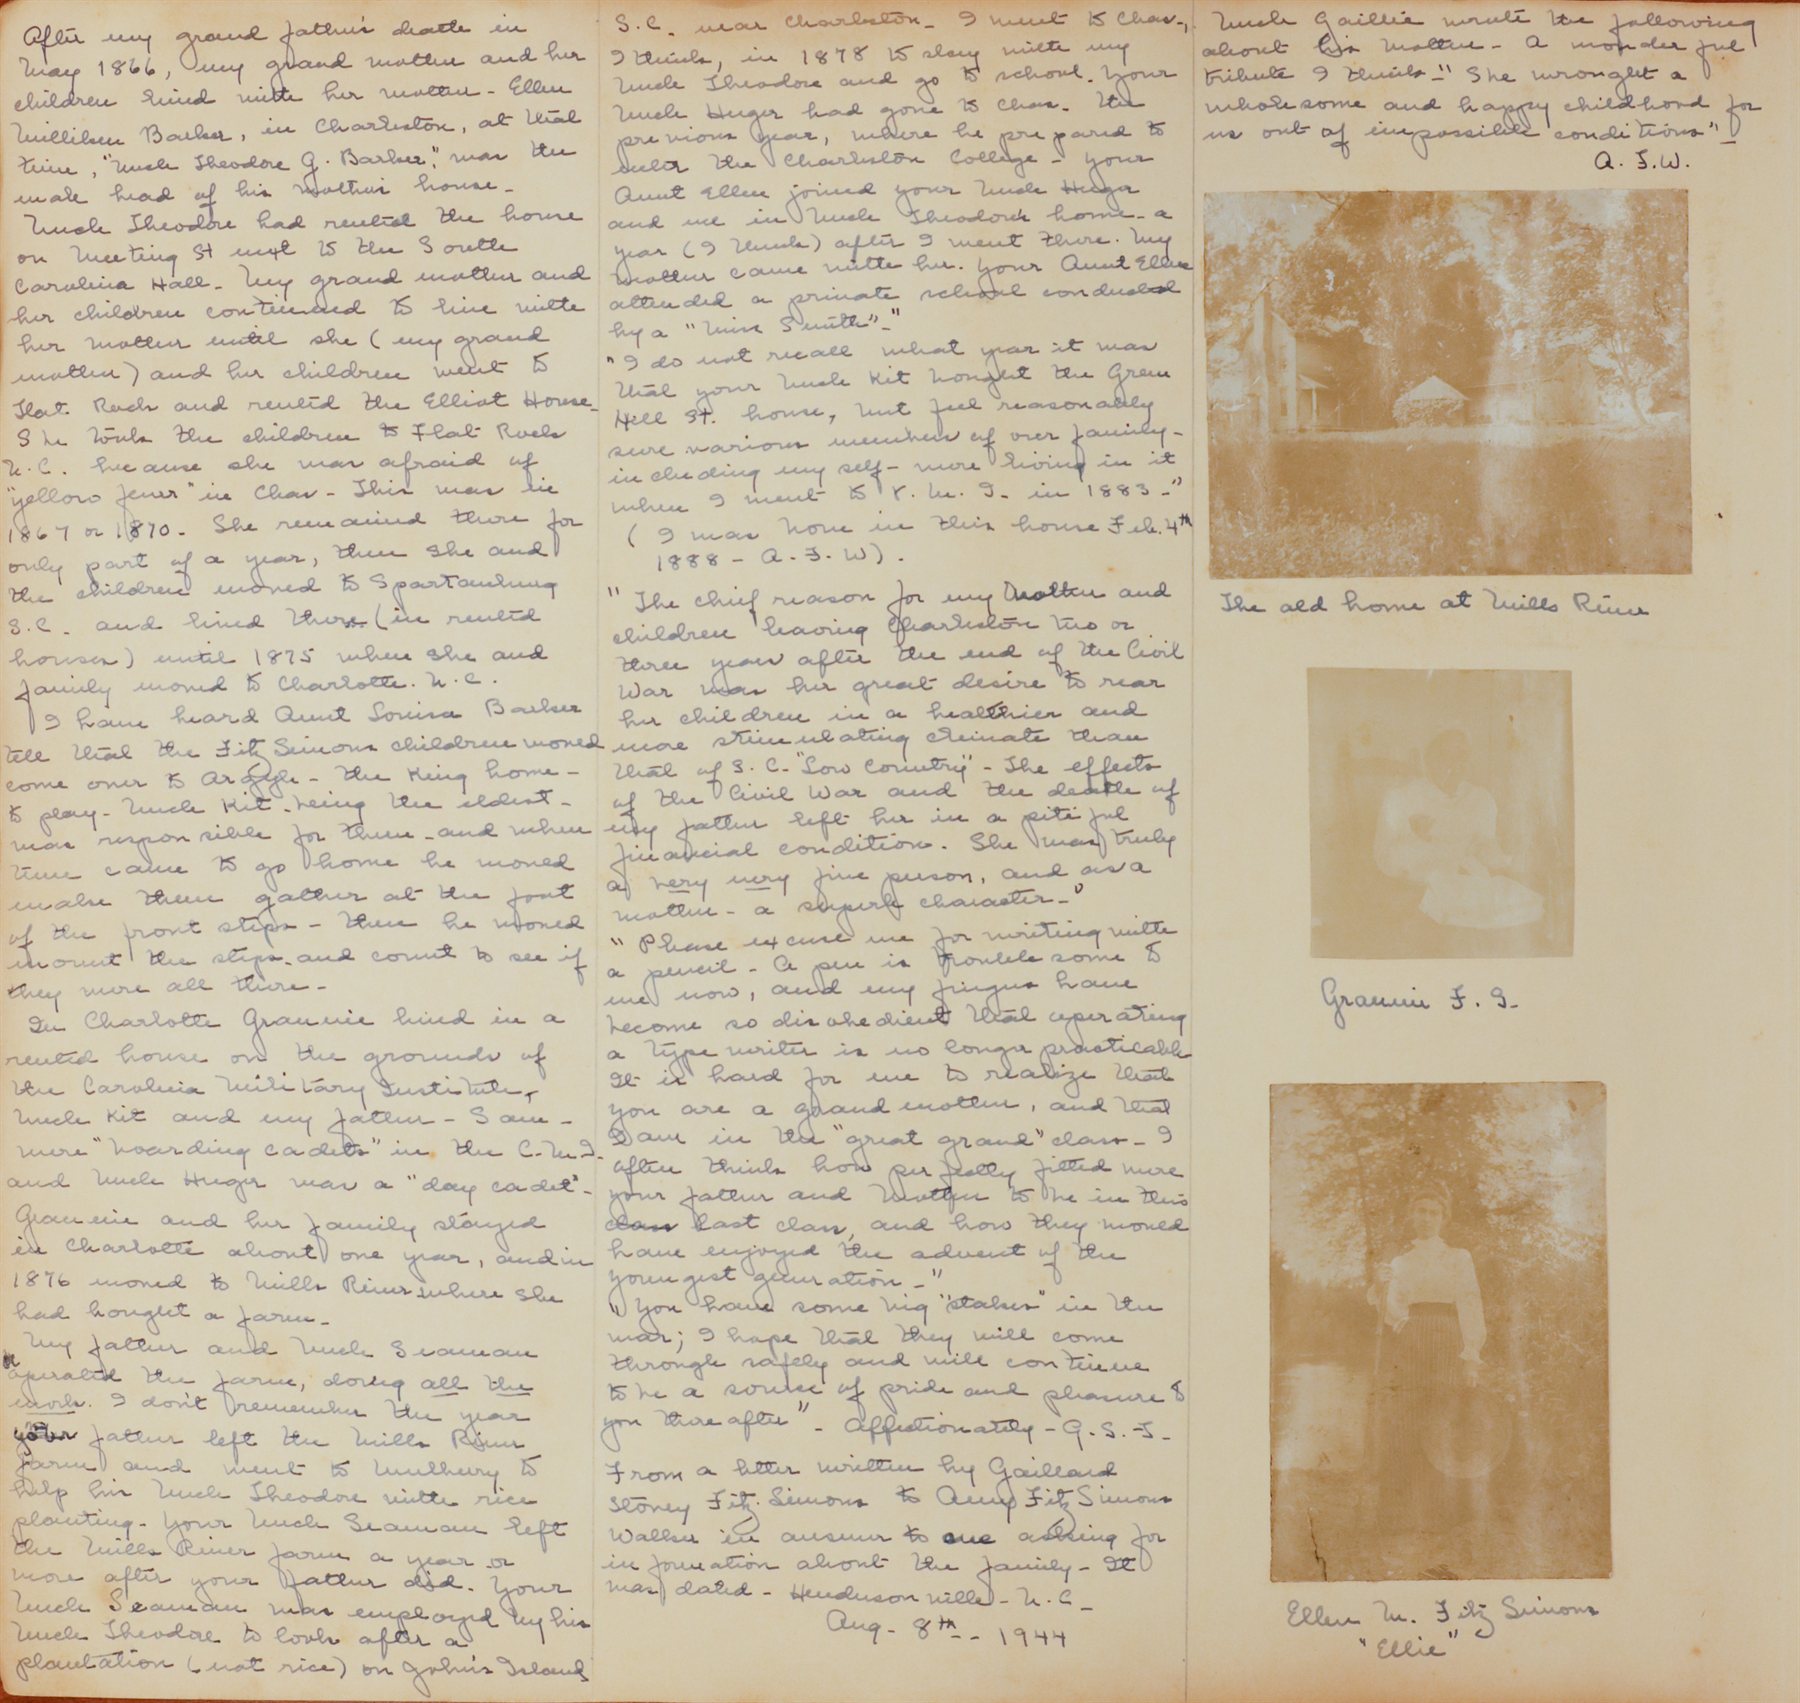 After my grand father's death in
May 1866, my grand mother and her
children lived with her mother - Ellen
Milliken Barker, in Charleston, at that
time, "Uncle Theodore G. Barker", was the
male head of his mother's house -
Uncle Theodore had rented the house
on Meeting St next to the South
Carolina Hall - My grand mother and
her children continued to live with
her mother until she (my grand
mother) and her children went to
Flat Rock and rented the Elliot House -
She took the children to Flat Rock
N.C. because she was afraid of
"yellow fever" in Chas - This was in
1867 or 1870 - She remained there for
only part of a year, then she and
the children moved to Spartanburg
S.C. and lived there (in rented
houses) until 1875 when she and
family moved to Charlotte. N.C.
I have heard Aunt Louisa Barker
tell that the Fitz Simons children would
come over to Argyle - the King home -
to play - Uncle Kit - being the eldest -
was responsible for them - and when
time came to go home he would
make them gather at the foot
of the front steps - then he would
mount the steps - and count to see if
they were all there -
In Charlotte Grannie lived in a
rented house on the grounds of
the Carolina Military Institute,
Uncle Kit and my father - Sam -
were "boarding cadets" in the C.M.I.
and Uncle Huger was a "day cadet" -
Grannie and her family stayed
in Charlotte about one year, and in
1876 moved to Mills River where she
had bought a farm -
My father and Uncle Seaman
operated the farm, doing all the
work. I don't remember the year
your father left the Mills River
farm and went to Mulberry to
help his Uncle Theodore with rice
planting - Your Uncle Seaman left
the Mills River farm a year or
more after your father did. Your
Uncle Seaman was employed by his
Uncle Theodore to look after a
plantation (not rice) on John's Island
S.C. near Charleston - I went to Chas.,
I think, in 1878 to stay with my
Uncle Theodore and go to school. Your
Uncle Huger had gone to Chas. the
previous year, where he prepared to
enter the Charleston College - Your
Aunt Ellen joined your Uncle Huger
and me in Uncle Theodore's home - a
year (I think) after I went there. My
mother came with her. Your Aunt Ellen
attended a private school conducted
by a "Miss Smith" - "
"I do not recall what year it was
that your Uncle Kit bought the Green
Hill St. house, but feel reasonably
sure various members of our family -
including my self - were living in it
when I went to V.M.I. in 1883 - "
(I was born in this house Feb. 4th
1888 - A.F.W).
"The chief reason for my Mother and
children leaving Charleston two or
three years after the end of the Civil
War was her great desire to rear
her children in a healthier and
more stimulating climate than
that of S.C. "Low Country" - The effects
of the Civil War and the death of
my father left her in a pitiful
financial condition. She was truly
a very very fine person, and as a
mother - a superb character - "
"Please excuse me for writing with
a pencil - A pen is troublesome to
me now, and my fingers have
become so disobedient that operating
a type writer is no longer practicable
It is hard for me to realize that
you are a grand mother, and that
I am in the "great grand" class - I
often think how perfectly fitted were
your father and mother to be in this
class last class, and how they would
have enjoyed the advent of the
youngest generation - "
"You have some big "stakes" in the
war; I hope that they will come
through safely and will continue
to be a source of pride and pleasure to
you thereafter" - Affectionately - G.S.F -
From a letter written by Gaillard
Stoney Fitz Simons to Amy Fitz Simons
Walker in answer to one asking for
information about the family - It
was dated - Hendersonville - N.C -
Aug - 8th - 1944
Uncle Gaillie wrote the following
about his Mother - A wonderful
tribute I think - "She wrought a
wholesome and happy childhood for
us out of impossible conditions"
A.F.W.
The old home at Mills River
Grannie F. S -
Ellen M. Fitz Simons
"Ellie"